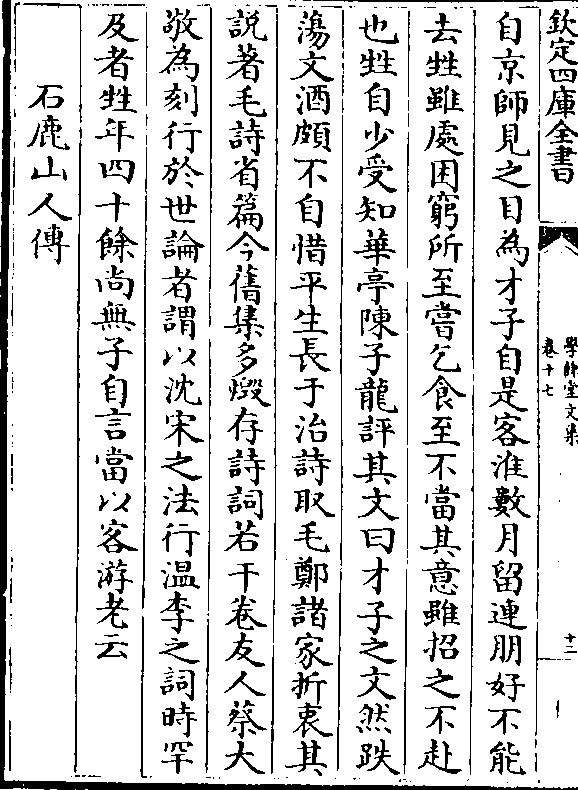 欽定四庫全書
學餘堂文集
卷十七
十二
自京師見之目為才子自是客淮數月留連朋好不能
去甡雖處困窮所至嘗乞食至不當其意雖招之不赴
也甡自少受知華亭陳子龍評其文曰才子之文然跌
蕩文酒頗不自惜平生長于治詩取毛鄭諸家折衷其
説著毛詩省篇今舊集多燬存詩詞若干卷友人蔡大
敬為刻行於世論者謂以沈宋之法行温李之詞時罕
及者甡年四十餘尚無子自言當以客游老云
石鹿山人傳